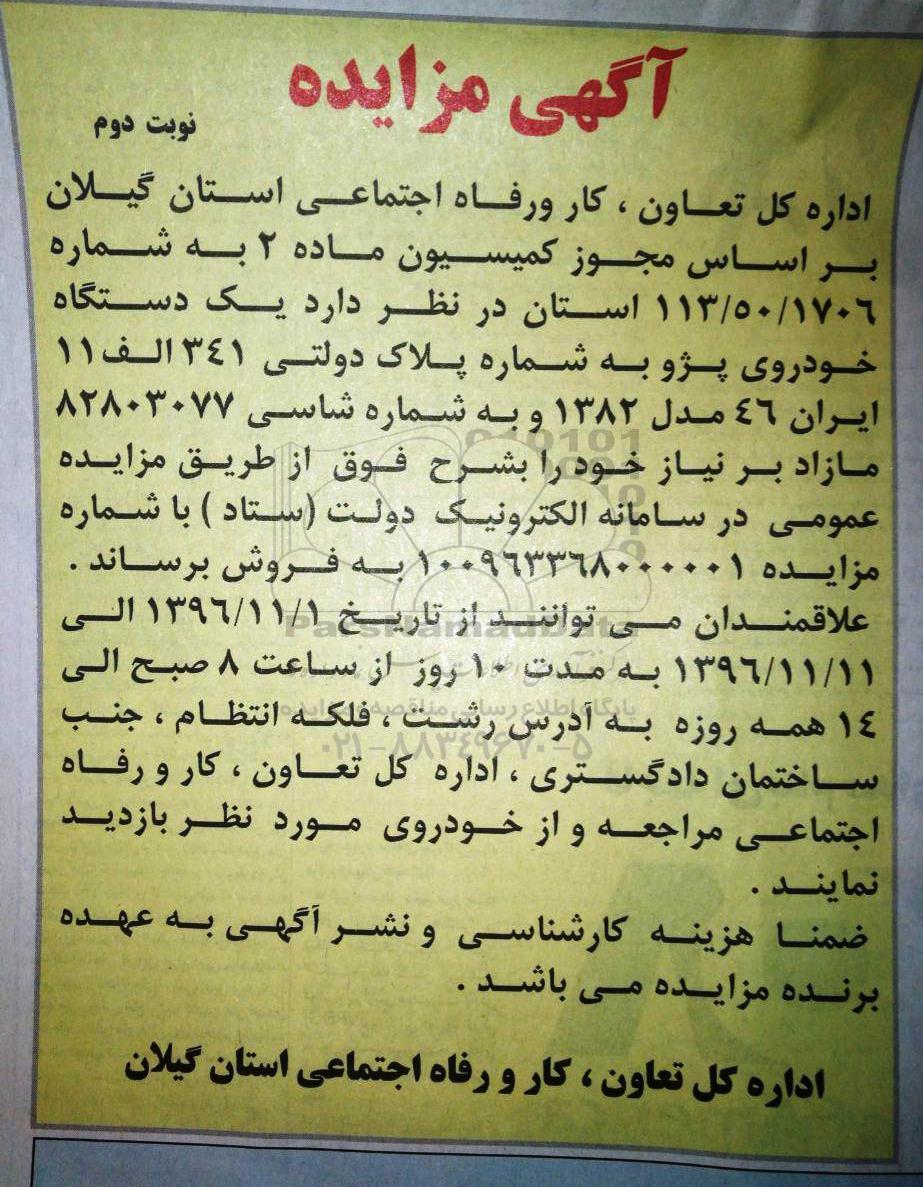 آگهی مزایده
نوبت دوم
اداره کل تعاون ، کار ورفاه اجتماعی استان گیلان
بر اساس مجوز کمیسیون ماده ۲ به شماره
۱۱۳/۵۰/۱۷۰۶ استان در نظر دارد یک دستگاه
خودروی پژو به شماره پلاک دولتی ۳۴۱ الف۱۱
ایران ۴۶ مدل ۱۳۸۲ و به شماره شاسی ۸۲۸۰۳۰۷۷
مازاد بر نیاز خود را بشرح فوق از طریق مزایده
عمومی در سامانه الکترونیک دولت (ستاد ) با شماره
مزایده ۱۰۰۹۶۳۳۶۸۰۰۰۰۰۱ به فروش برساند .
علاقمندان می توانند از تاریخ ۱۳۹۶/۱۱/۱ الی
۱۳۹۶/۱۱/۱۱ به مدت ۱۰ روز از ساعت ۸ صبح الی
۱۴ همه روزه به آدرس رشت ، فلکه انتظام ، جنب
ساختمان دادگستری ، اداره کل تعاون ، کار و رفاه
اجتماعی مراجعه و از خودروی مورد نظر بازدید
نمایند .
ضمنا هزینه کارشناسی و نشر آگهی به عهده
برنده مزایده می باشد .
اداره کل تعاون ، کار و رفاه اجتماعی استان گیلان
ParsNamadData
پایگاه اطلاع رسانی مناقصه و مزایده
۰۲۱-۸۸۳۴۹۶۷۰-۵